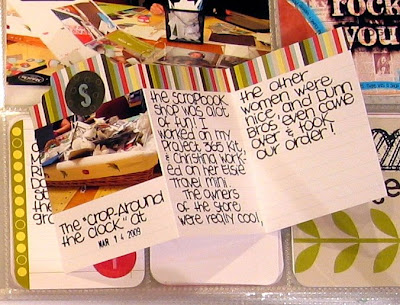 rock
you
S
The "Crop Around
the clock" at
MAR 14 2009
the scrapbook
shop was alot
of fun. I
worked on my
Project 365 Kit
& Christina work-
ed on her Elsie
Travel mini.
The owners
of the store
were really cool,
the other
women were
nice, and Dunn
Bros. even came
over & took
our order!